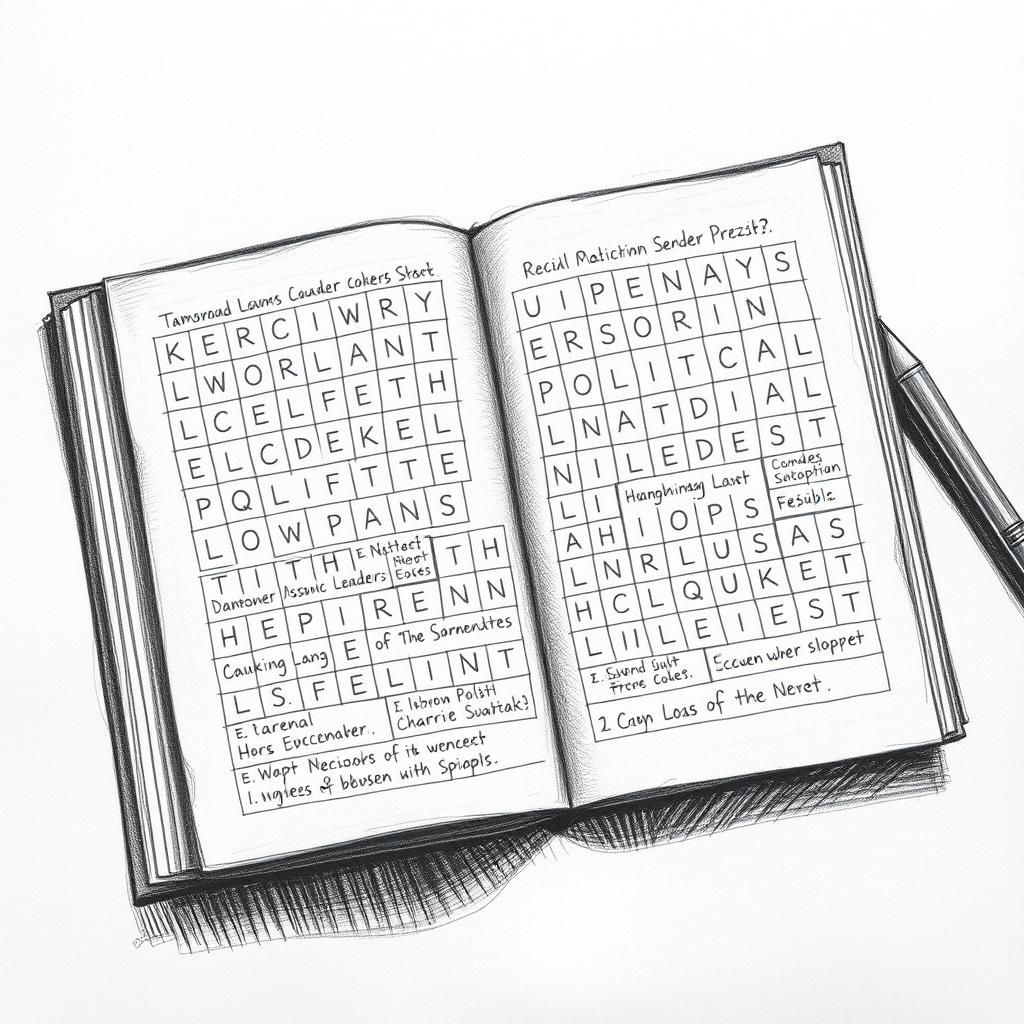 Tamsroad Lowns Cauder Cokers Stort.
K E R C I W R Y
L W O R L A N T
L C E L F E T H
E L C D E K E L
P Q L I F T T E
L O W P A N S
T I T H E Nattect T H
Dantoner Assunic Leaders Eoces
H E P I R E N N
Cauking Lang E of The Sornenutes
L S. F E L I N T
E. Iarenal
Hors Euccenaker.
E Isbron Polsti
Charrie Suattak?
E. Wapt Neciooks of its wencest
I. wgiees of bbusen with Spiapls.
Reciul Matictivn Sender Prezslt?.
U I P E N A Y S
E R S O R I N
P O L I T C A L
L N A T D I A L
N I L E D E S T
L I Hunghinisg Lavst
Comdes
Satoption
Fesiible
A H I O P S
L N R L U S A S
H C L Q U K E T
L I I L E I E S T
I. Sound Sult
Frere Cokes.
Eccuen wher sloppet
2 Cayn Loss of the Neret.